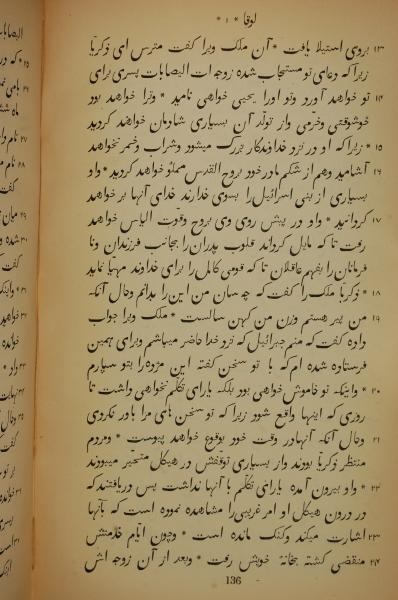 لوقا * ۱ *
۱۳ بروی استیلا یافت * آن ملک ویرا گفت مترس ای زکریا
زیرا که دعای تو مستجاب شده زوجه ات الیصابات پسری برای
۱۴ تو خواهد آورد وتو اورا یحیی خواهی نامید * وترا خواهد بود
خوشوقتی وخرمی واز تولد آن بسیاری شادمان خواهند گردید
۱۵ * زیرا که او در نزد خداوندکار بزرک میشود وشراب وخمر نخواهد
۱۶ آشامید وهم از شکم مادر خود بروح القدس مملو خواهد گردید * واو
بسیاری از بنی اسرائیل را بسوی خداوند خدای آنها بر خواهد
۱۷ کردانید * واو در پیش روی وی بروح وقوت الیاس خواهد
رفت تا که مایل کرداند قلوب پدران را بجانب فرزندان ونا
فرمانان را بفهم عاقلان تا که قومی کامل را برای خداوند مهیا نماید
۱۸ * زکریا ملک را گفت که چه سان من این را بدانم وحال آنکه
۱۹ من پیر هستم وزن من کهن سالست * ملک ویرا جواب
داده گفت که منم جبرائیل که نزد خدا حاضر میباشم وبرای همین
فرستاده شده ام که با تو سخن گفته این مژده را بتو سپارم
۲۰ * واینکه تو خاموش خواهی بود بلکه یارای تکلم نخواهی داشت تا
روزی که اینها واقع شوند زیرا که تو سخن های مرا باور نکردی
۲۱ وحال آنکه آنها در وقت خود بوقوع خواهد پیوست * ومردم
منتظر زکریا بودند واز بسیاری توقفش در هیکل متحیر میبودند
۲۲ * واو بیرون آمده یارای تکلم با آنها نداشت پس دریافتند که
در درون هیکل او امر غریبی را مشاهده نموده است که بآنها
۲۳ اشارت میکند وکنک مانده است * وچون ایام خدمتش
۲۴ منقضی کشته بخانهٔ خویش رفت * وبعد از آن زوجه اش
136